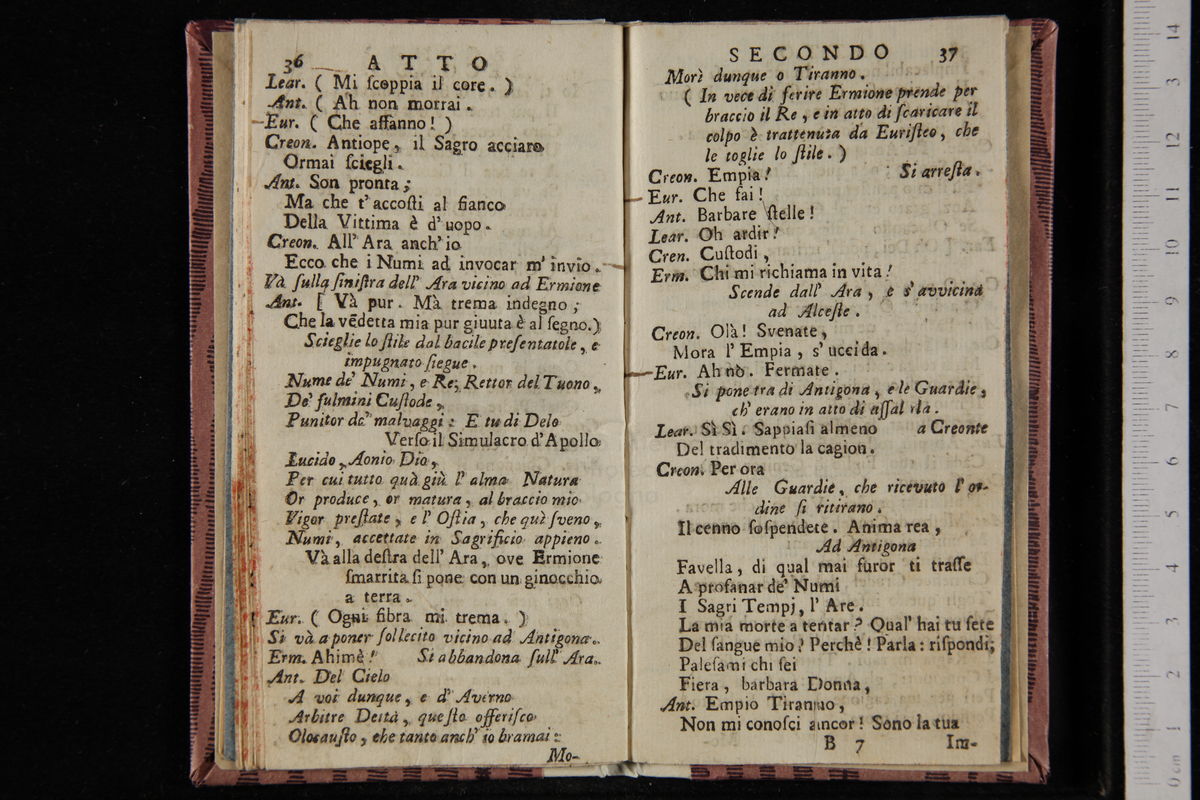 36 ATTO
Lear. ( Mi ſcoppia il core. )
Ant. ( Ah non morrai.
Eur. ( Che affanno! )
Creon. Antiope, il Sagro acciaro
Ormai ſciegli.
Ant. Son pronta;
Ma che t'accoſti al fianco
Della Vittima è d'uopo.
Creon. All'Ara anch'io
Ecco che i Numi ad invocar m'invio.
Và ſulla ſiniſtra dell'Ara vicino ad Ermione
Ant. [ Và pur. Mà trema indegno;
Che la vēdetta mia pur giuuta è al ſegno.)
Scieglie lo ſtile dal bacile preſentatole, e
impugnato ſiegue.
Nume de' Numi, e Re, Rettor del Tuono,
De' fulmini Cuſtode,
Punitor de' malvaggi: E tu di Delo
Verſo il Simulacro d'Apollo
Lucido, Aonio Dio,
Per cui tutto quà giù l'alma Natura
Or produce, or matura, al braccio mio
Vigor preſtate, e l'Oſtia, che quì ſveno,
Numi, accettate in Sagrificio appieno.
Và alla deſtra dell'Ara, ove Ermione
ſmarrita ſi pone con un ginocchio
a terra.
Eur. ( Ogni fibra mi trema. )
Si và a poner ſollecito vicino ad Antigona.
Erm. Ahimè! Si abbandona ſull'Ara.
Ant. Del Cielo
A voi dunque, e d'Averno
Arbitre Deità, queſto offeriſco
Olocauſto, che tanto anch'io bramai:
Mo-
SECONDO 37
Morì dunque o Tiranno.
( In vece di ferire Ermione prende per
braccio il Re, e in atto di ſcaricare il
colpo è trattenuta da Euriſteo, che
le toglie lo ſtile. )
Creon. Empia! Si arreſta.
Eur. Che fai!
Ant. Barbare ſtelle!
Lear. Oh ardir!
Cren. Cuſtodi,
Erm. Chi mi richiama in vita!
Scende dall'Ara, e s'avvicina
ad Alceſte.
Creon. Olà! Svenate,
Mora l'Empia, s'uccida.
Eur. Ah nò. Fermate.
Si pone tra di Antigona, e le Guardie,
ch'erano in atto di aſſalirla.
Lear. Sì Sì. Sappiaſi almeno a Creonte
Del tradimento la cagion.
Creon. Per ora
Alle Guardie, che ricevuto l'or-
dine ſi ritirano.
Il cenno ſoſpendete. Anima rea,
Ad Antigona
Favella, di qual mai furor ti traſſe
A profanar de' Numi
I Sagri Tempj, l'Are.
La mia morte a tentar? Qual'hai tu ſete
Del ſangue mio? Perchè! Parla: riſpondi;
Paleſami chi ſei
Fiera, barbara Donna,
Ant. Empio Tiranno,
Non mi conoſci ancor! Sono la tua
B 7 Im-
0 cm 1 2 3 4 5 6 7 8 9 10 11 12 13 14